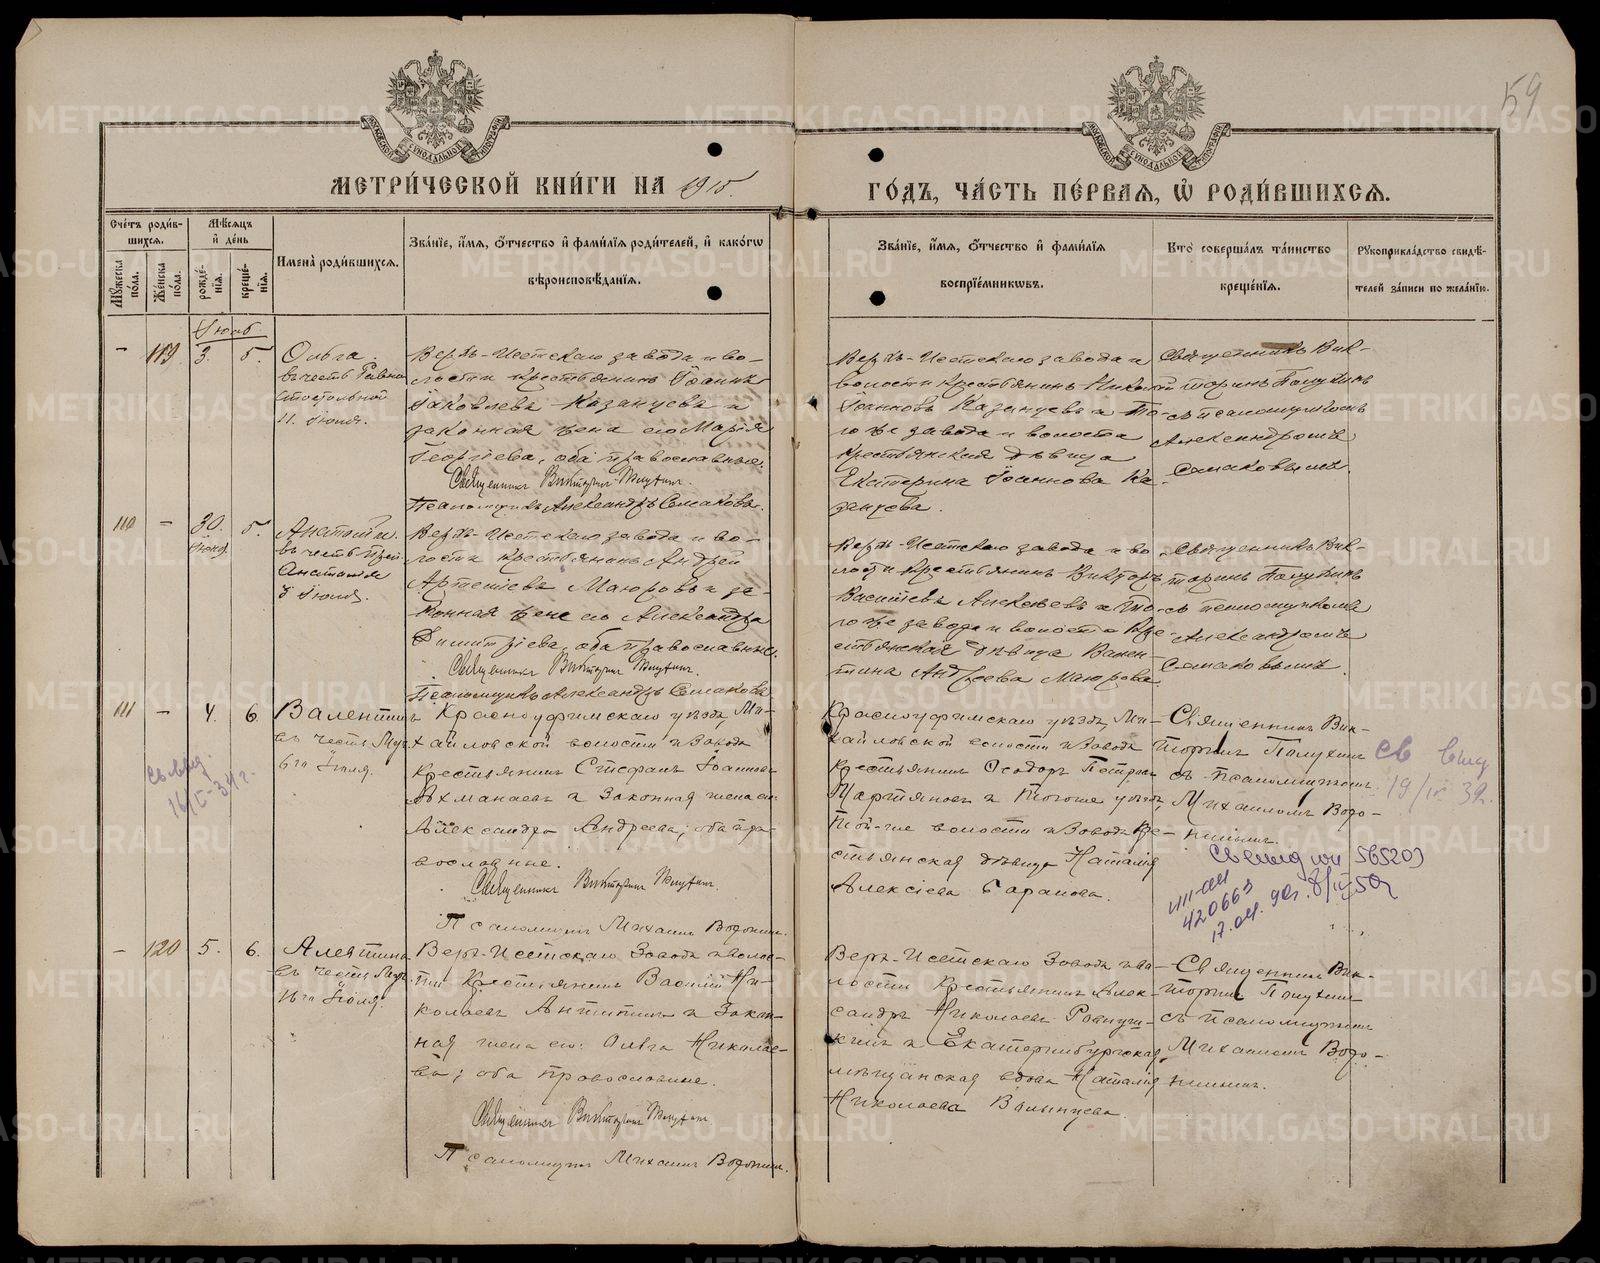 59
МЕТРИ́ЧЕСКОЙ КНИ́ГИ НА 1915.
ГО́ДЪ, ЧА́СТЬ ПЕ́РВАЯ, Ѡ҆ РОДИ́ВШИХСЯ.
Сче́тъ роди́вшихся.
Му́жеска по́ла.
Же́нска по́ла.
Мѣ́сяцъ и҆ де́нь
рожде́нїя.
креще́нїя.
Имена̀ роди́вшихся.
Зва́нїе, и҆́мя, ѻ҆́тчество и҆ фами́лїя роди́телей, и҆ како́гѡ
вѣроисповѣ́данїя.
Зва́нїе, и҆́мя, ѻ҆́тчество и҆ фами́лїя
воспрїе́мникѡвъ.
Кто̀ соверша́лъ та́инство
креще́нїя.
Рꙋкоприкла́дство свидѣ́телей за́писи по жела́нїю.
Іюль
- 119 3. 5.
Ольга.
въ честь Равно
апостольной
11 Іюля.
Верхъ-Исетскаго завода и во-
лости крестьянинъ Іоаннъ
Іаковлевъ Казанцевъ и
законная жена его Марія
Георгіева, оба православные.
Священникъ Викторинъ
Псаломщикъ Александръ Симаковъ.
Верхъ-Исетскаго завода и
волости крестьянинъ Николай
Іоанновъ Казанцевъ и то-
го же завода и волости
крестьянская дѣвица
Екатерина Іоаннова Ка-
занцева.
Священникъ Вик-
торинъ
съ псаломщикомъ
Александромъ
Симаковымъ.
110 - 30. Іюня 5.
Анатолій.
въ честь
Анатолія
3 Іюля.
Верхъ-Исетскаго завода и во-
лости крестьянинъ Андрей
Артемьевъ Маюровъ и за-
конная жена его Александра
Димитріева, оба православные.
Священникъ Викторинъ
Псаломщикъ Александръ Симаковъ
Верхъ-Исетскаго завода и во-
лости крестьянинъ Викторъ
Васильевъ Алексѣевъ и то-
го же завода и волости кре-
стьянская дѣвица Вален-
тина Андреева Маюрова.
Священникъ Вик-
торинъ
съ псаломщикомъ
Александромъ
Симаковымъ.
111 - 4. 6
Валентинъ
въ честь Муч.
6го Іюля.
Красноуфимскаго уѣзда, Ми-
хайловской волости и Завода
крестьянинъ Стефанъ Іоанновъ
и Законная жена его
Александра Андреева; оба пра-
вославные.
Священникъ Викторинъ
Псаломщикъ Михаилъ
Красноуфимскаго уѣзда, Ми-
хайловской волости и Завода
крестьянинъ Ѳеодоръ Петровъ
Мартьяновъ и того же уѣзда,
той-же волости и Завода кре-
стьянская дѣвица Наталія
Алексіева Баранова.
Священникъ Вик-
торинъ
съ псаломщикомъ
Михаиломъ
св выд
19/IV 32.
- 120 5. 6.
Алевтина
въ честь Муч.
16го Іюля.
Верх-Исетскаго Завода и волос-
ти Крестьянинъ Василій Ни-
колаевъ Антипинъ и Закон-
ная жена его: Ольга Николае-
ва; оба православные.
Священникъ Викторинъ
Псаломщикъ Михаилъ
Верх-Исетскаго Завода и во-
лости Крестьянинъ Алек-
сандръ Николаевъ
и Екатеринбургская
мѣщанская вдова Наталія
Николаева
Священникъ Вик-
торинъ
съ псаломщикомъ
Михаиломъ